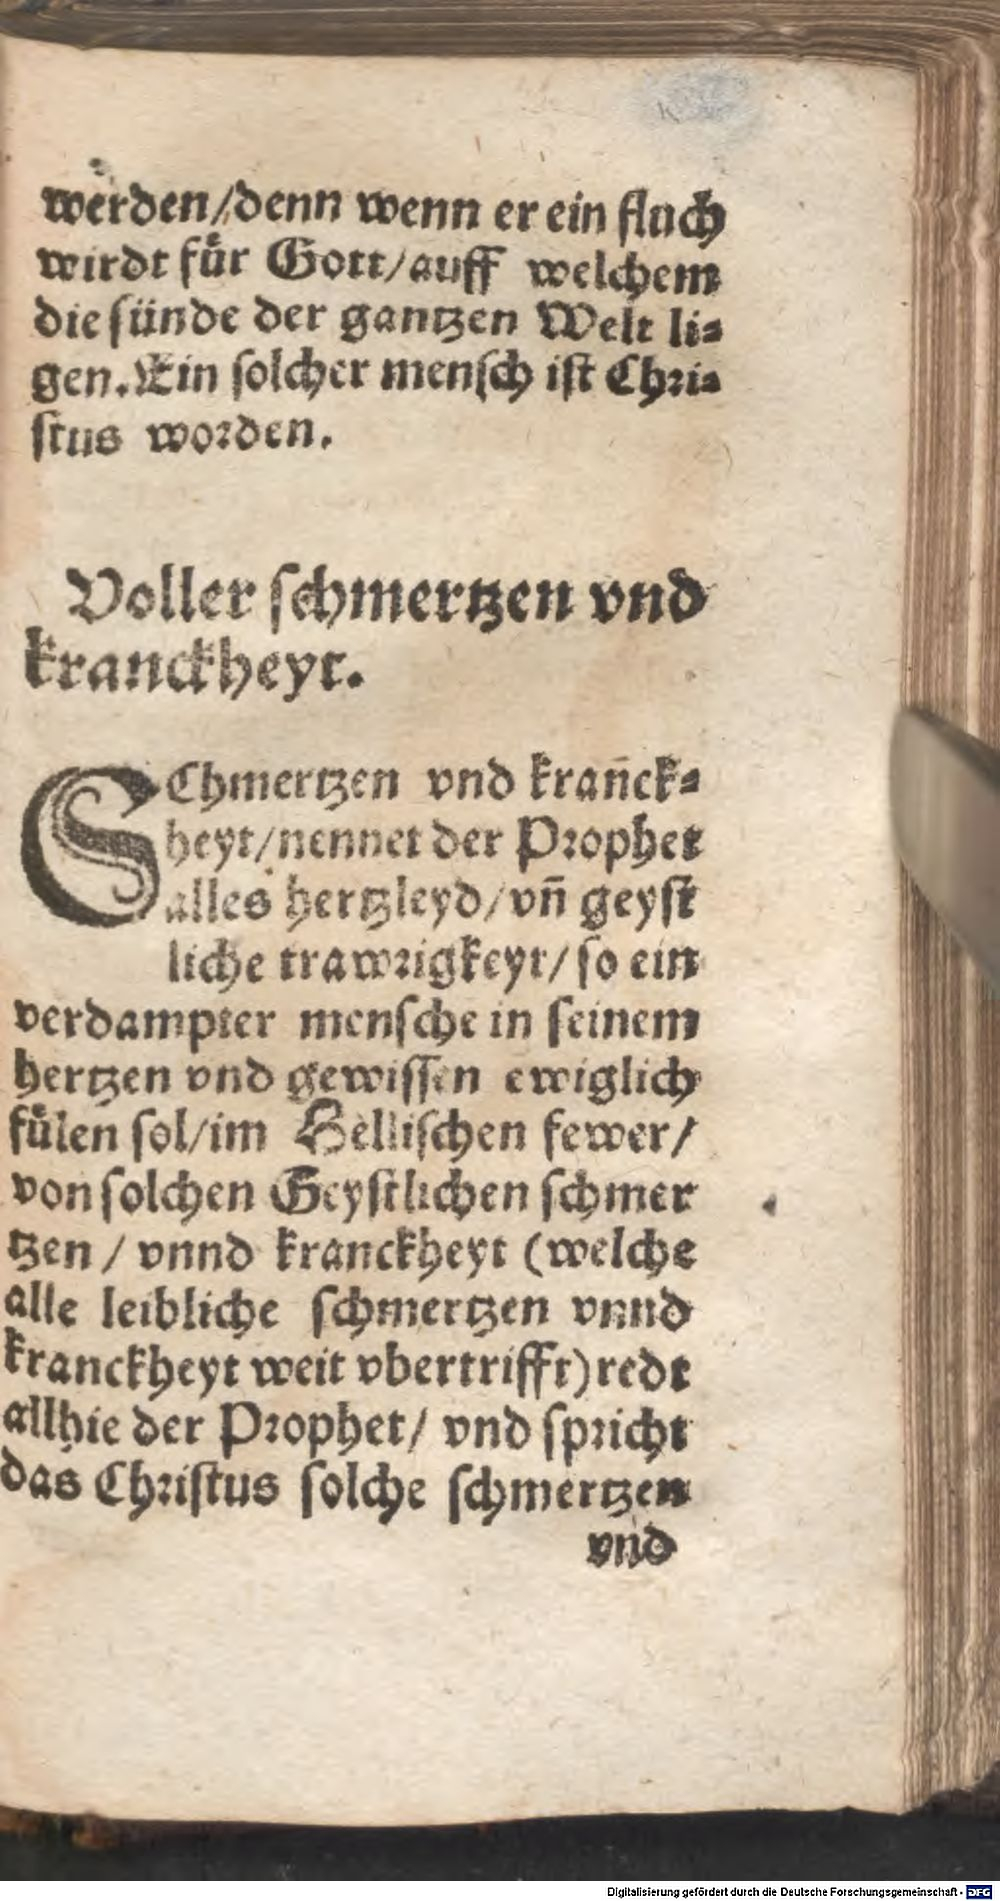 werden/denn wenn er ein fluch
wirdt fuͤr Gott/auff welchem
die sünde der gantzen Welt li⸗
gen. Ein solcher mensch ist Chri⸗
stus worden.
Voller schmertzen vnd
kranckheyt.
SChmertzen vnd kran̄ck⸗
heyt/nennet der Prophet
alles hertzleyd/vn̄ geyst
liche trawrigkeyt/so ein
verdampter mensche in seinem
hertzen vnd gewissen ewiglich
fuͤlen sol/im Hellischen fewer/
von solchen Geystlichen schmer
tzen / vnnd kranckheyt (welche
alle leibliche schmertzen vnnd
kranckheyt weit vbertrifft) redt
allhie der Prophet/ vnd spricht
das Christus solche schmertzen
vnd
Digitalisierung gefördert durch die Deutsche Forschungsgemeinschaft - DFG